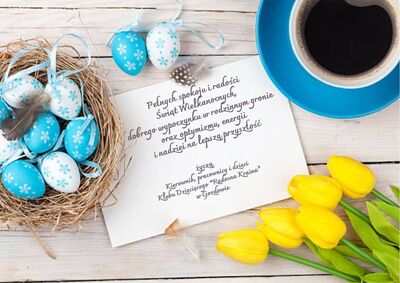 Pełnych spokoju i radości
Świąt Wielkanocnych,
dobrego wypoczynku w rodzinnym gronie
oraz optymizmu, energii
i nadziei na lepszą przyszłość
życzą
Kierownik, pracownicy i dzieci
Klubu Dziecięcego "Radosna Kraina"
w Gorzkowie